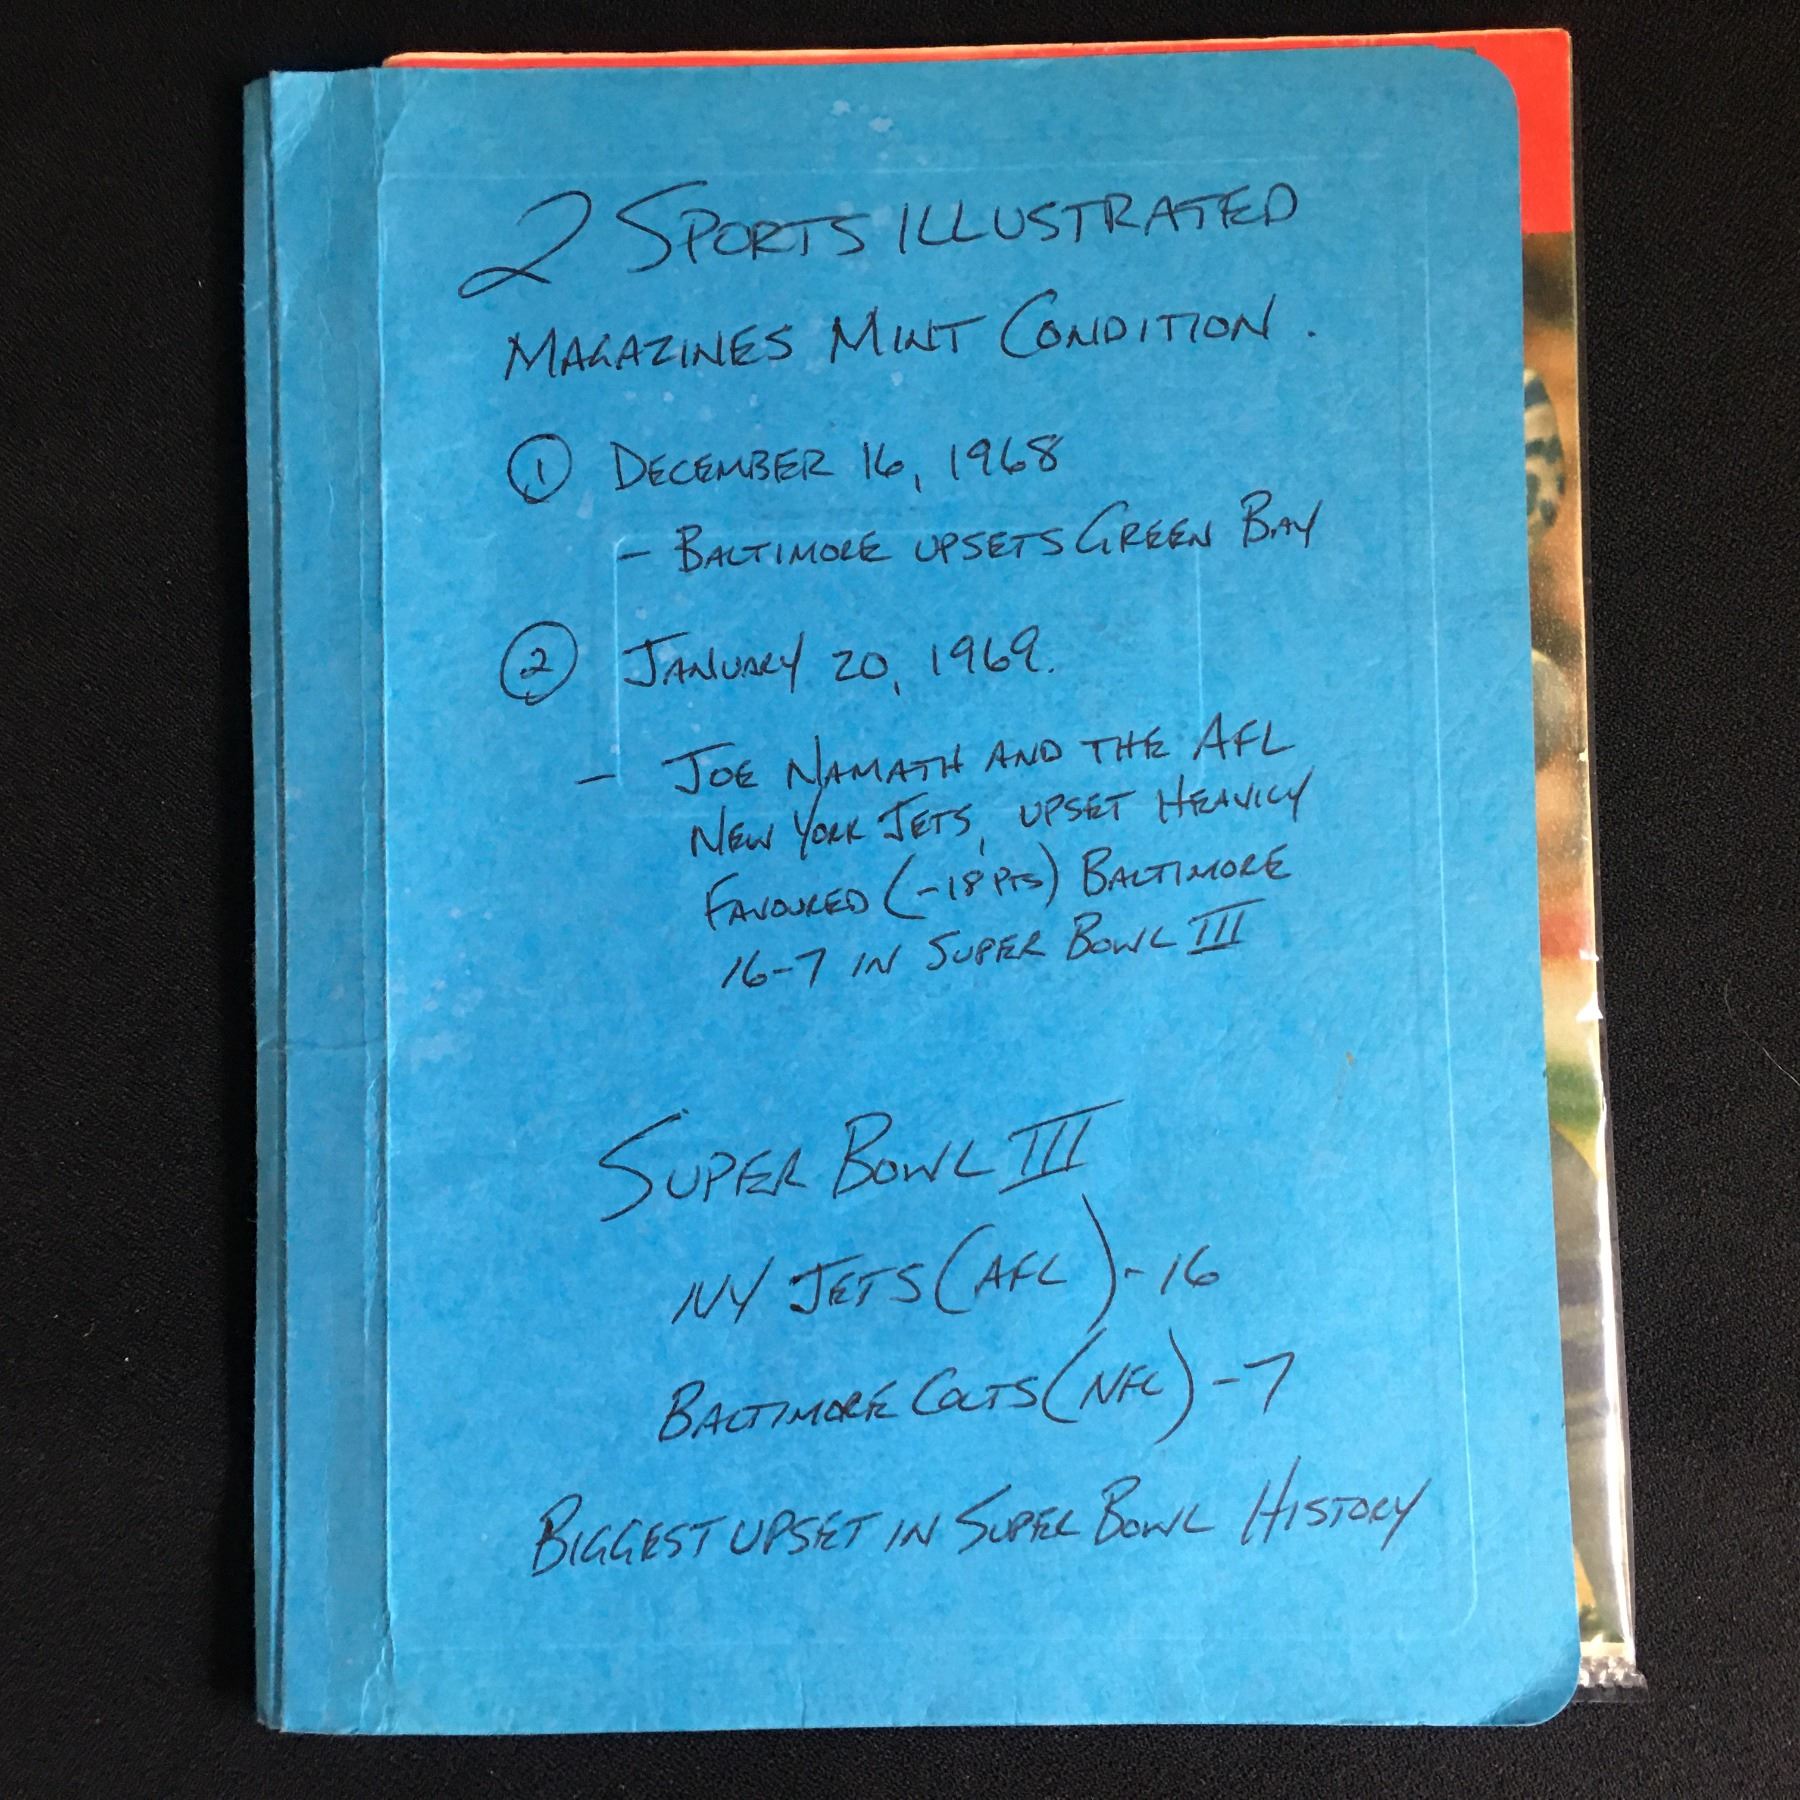 2 SPORTS ILLUSTRATED
MAGAZINES MINT CONDITION.
1 DECEMBER 16, 1968
- BALTIMORE UPSETS GREEN BAY
2 JANUARY 20, 1969.
- JOE NAMATH AND THE AFL
NEW YORK JETS, UPSET HEAVILY
FAVOURED (-18 PTS) BALTIMORE
16-7 IN SUPER BOWL III
SUPER BOWL III
NY JETS (AFL) - 16
BALTIMORE COLTS (NFL) - 7
BIGGEST UPSET IN SUPER BOWL HISTORY